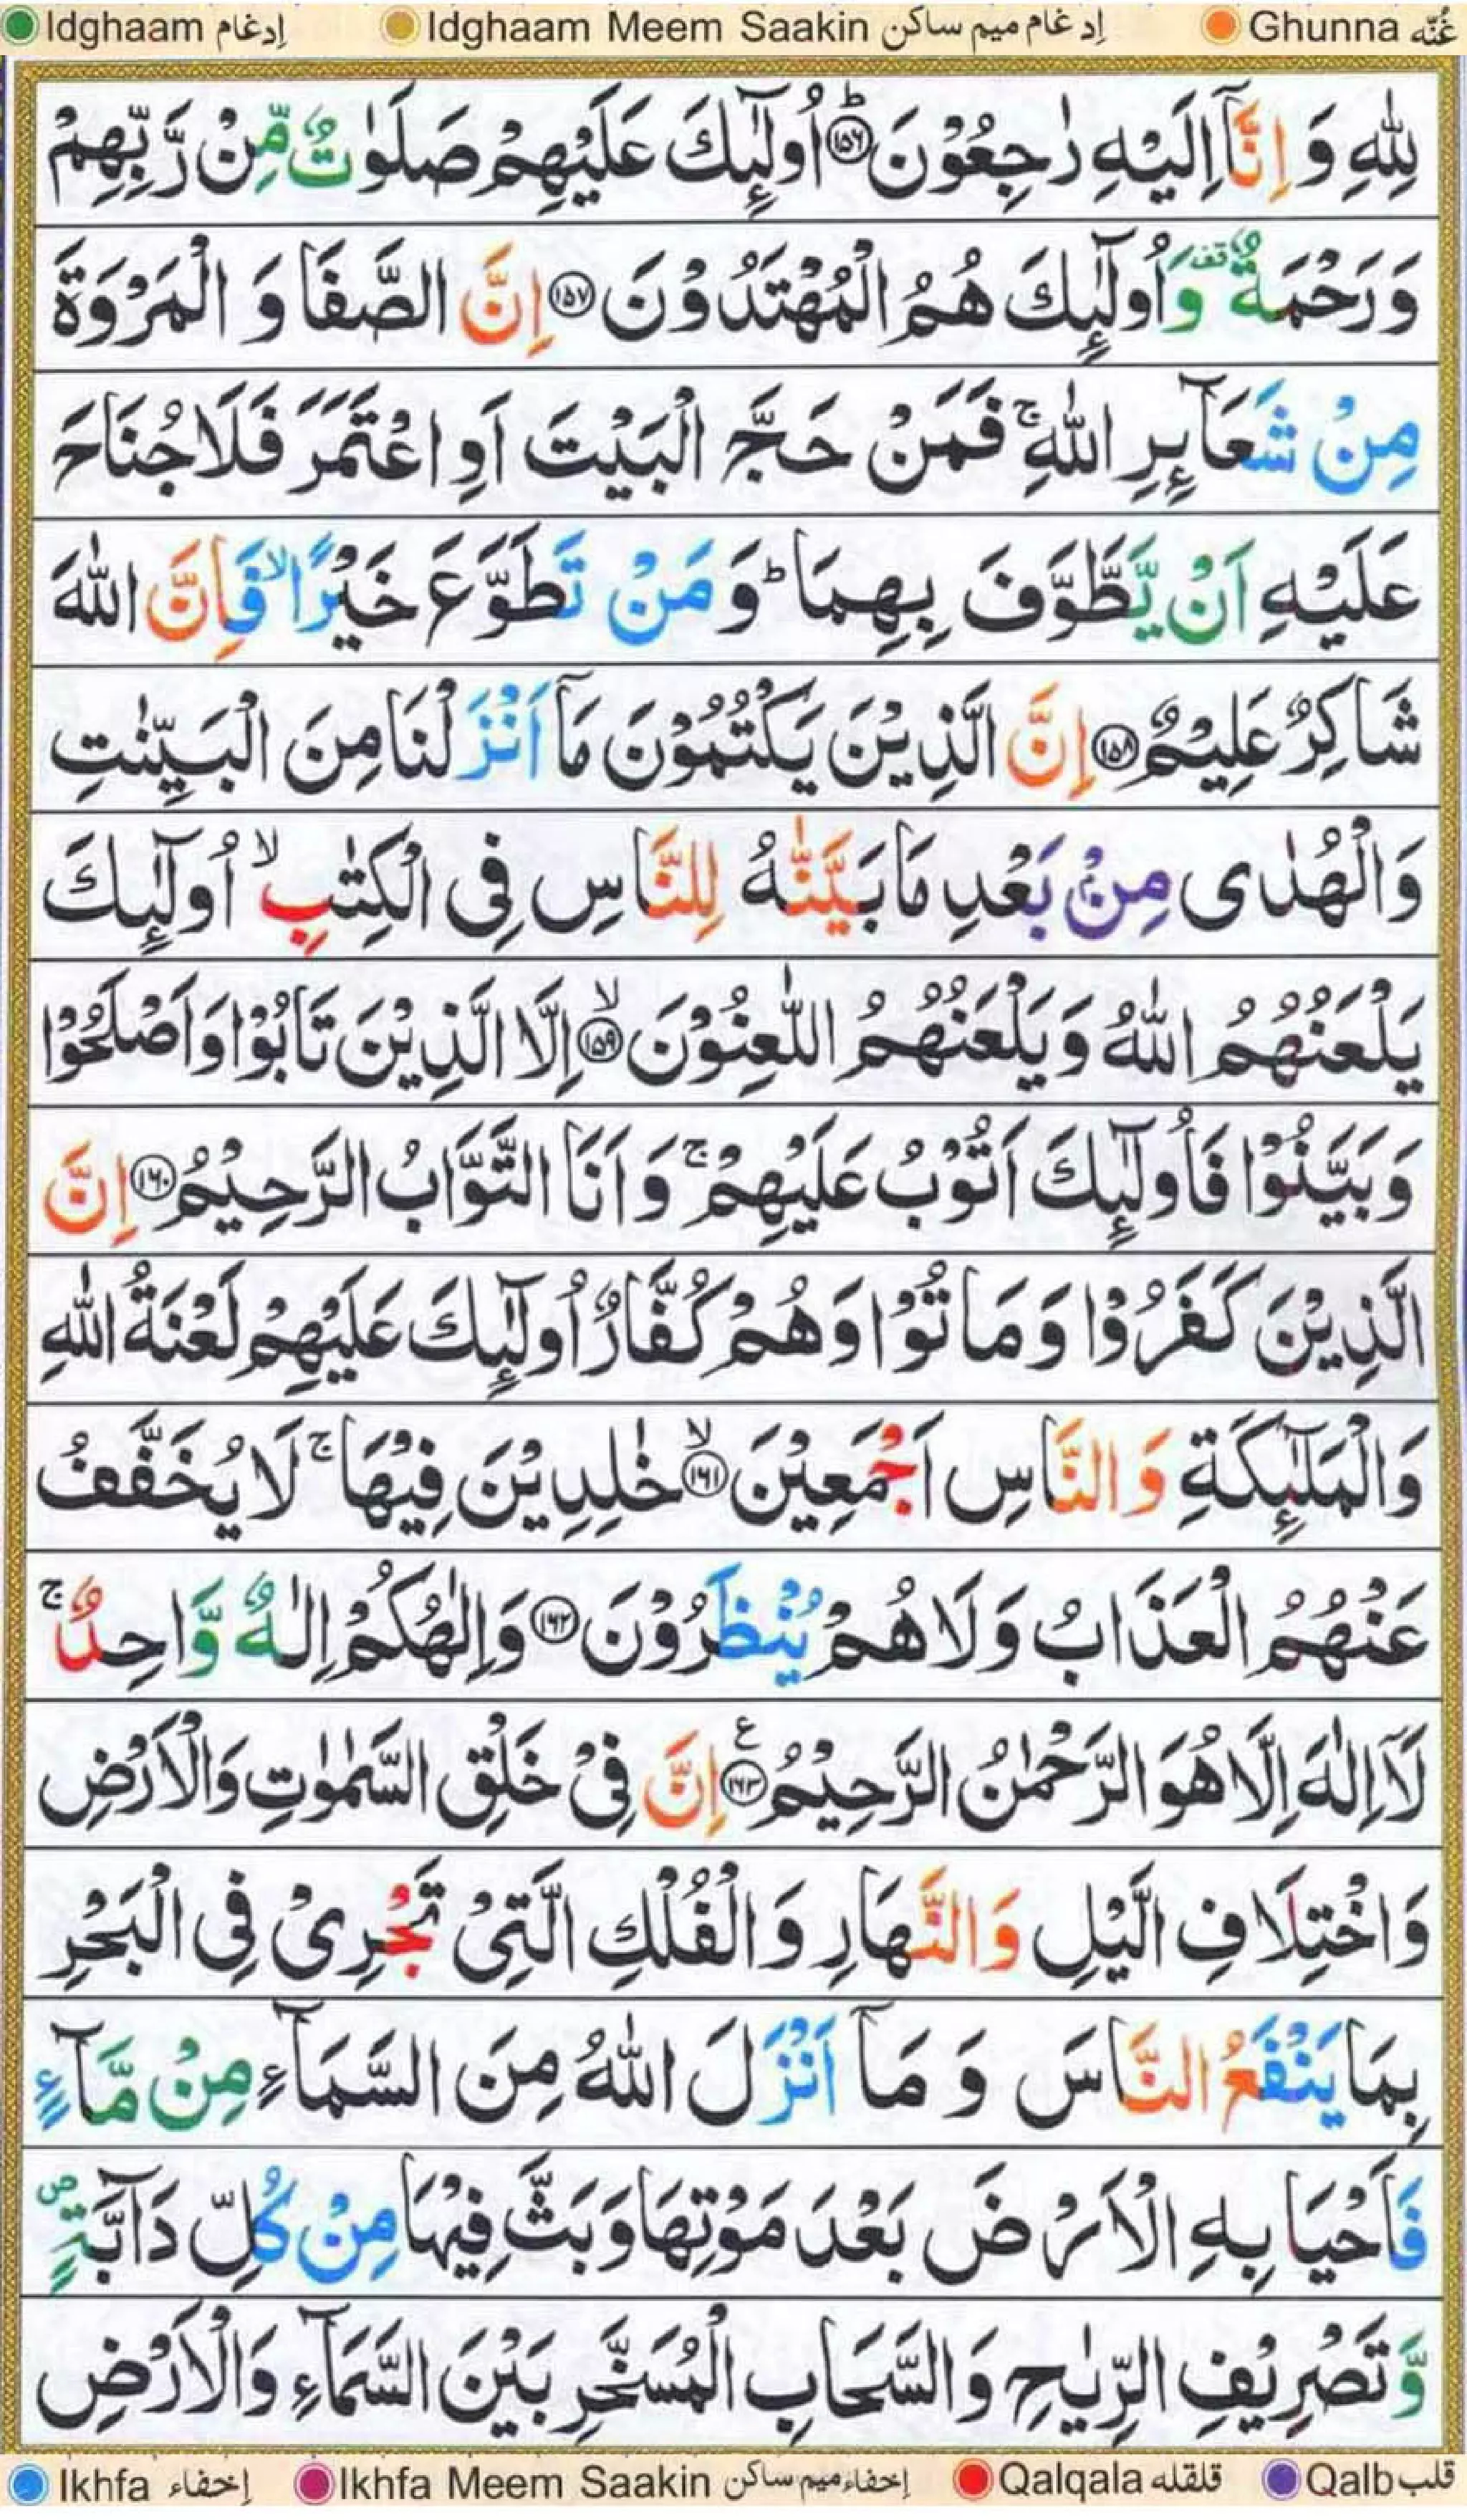 Idghaam إدغام Idghaam Meem Saakin إدغام ميم ساكن Ghunna غُنّه
لِلّٰهِ وَ اِنَّاۤ اِلَيْهِ رٰجِعُوْنَ ﴿۱۵۶﴾ؕ اُولٰٓئِكَ عَلَيْهِمْ صَلَوٰتٌ مِّنْ رَّبِّهِمْ
وَرَحْمَةٌ ۟قف وَاُولٰٓئِكَ هُمُ الْمُهْتَدُوْنَ ﴿۱۵۷﴾ اِنَّ الصَّفَا وَ الْمَرْوَةَ
مِنْ شَعَآئِرِ اللّٰهِ ۚ فَمَنْ حَجَّ الْبَيْتَ اَوِ اعْتَمَرَ فَلَا جُنَاحَ
عَلَيْهِ اَنْ يَّطَّوَّفَ بِهِمَا ؕ وَ مَنْ تَطَوَّعَ خَيْرًا ۙ فَاِنَّ اللّٰهَ
شَاكِرٌ عَلِيْمٌ ﴿۱۵۸﴾ اِنَّ الَّذِيْنَ يَكْتُمُوْنَ مَاۤ اَنْزَلْنَا مِنَ الْبَيِّنٰتِ
وَالْهُدٰى مِنْۢ بَعْدِ مَا بَيَّنّٰهُ لِلنَّاسِ فِى الْكِتٰبِ ۙ اُولٰٓئِكَ
يَلْعَنُهُمُ اللّٰهُ وَ يَلْعَنُهُمُ اللّٰعِنُوْنَ ﴿۱۵۹﴾ۙ اِلَّا الَّذِيْنَ تَابُوْا وَ اَصْلَحُوْا
وَ بَيَّنُوْا فَاُولٰٓئِكَ اَتُوْبُ عَلَيْهِمْ ۚ وَ اَنَا التَّوَّابُ الرَّحِيْمُ ﴿۱۶۰﴾ اِنَّ
الَّذِيْنَ كَفَرُوْا وَ مَاتُوْا وَ هُمْ كُفَّارٌ اُولٰٓئِكَ عَلَيْهِمْ لَعْنَةُ اللّٰهِ
وَالْمَلٰٓئِكَةِ وَ النَّاسِ اَجْمَعِيْنَ ﴿۱۶۱﴾ۙ خٰلِدِيْنَ فِيْهَا ۚ لَا يُخَفَّفُ
عَنْهُمُ الْعَذَابُ وَ لَا هُمْ يُنْظَرُوْنَ ﴿۱۶۲﴾ وَاِلٰهُكُمْ اِلٰهٌ وَّاحِدٌ ۚ
لَاۤ اِلٰهَ اِلَّا هُوَ الرَّحْمٰنُ الرَّحِيْمُ ﴿۱۶۳﴾ ع اِنَّ فِىْ خَلْقِ السَّمٰوٰتِ وَالْاَرْضِ
وَاخْتِلَافِ الَّيْلِ وَ النَّهَارِ وَ الْفُلْكِ الَّتِىْ تَجْرِىْ فِى الْبَحْرِ
بِمَا يَنْفَعُ النَّاسَ وَ مَاۤ اَنْزَلَ اللّٰهُ مِنَ السَّمَآءِ مِنْ مَّآءٍ
فَاَحْيَا بِهِ الْاَرْضَ بَعْدَ مَوْتِهَا وَ بَثَّ فِيْهَا مِنْ كُلِّ دَآبَّةٍ ۪
وَّ تَصْرِيْفِ الرِّيٰحِ وَ السَّحَابِ الْمُسَخَّرِ بَيْنَ السَّمَآءِ وَالْاَرْضِ
Ikhfa إخفاء Ikhfa Meem Saakin إخفاء ميم ساكن Qalqala قلقله Qalb قلب